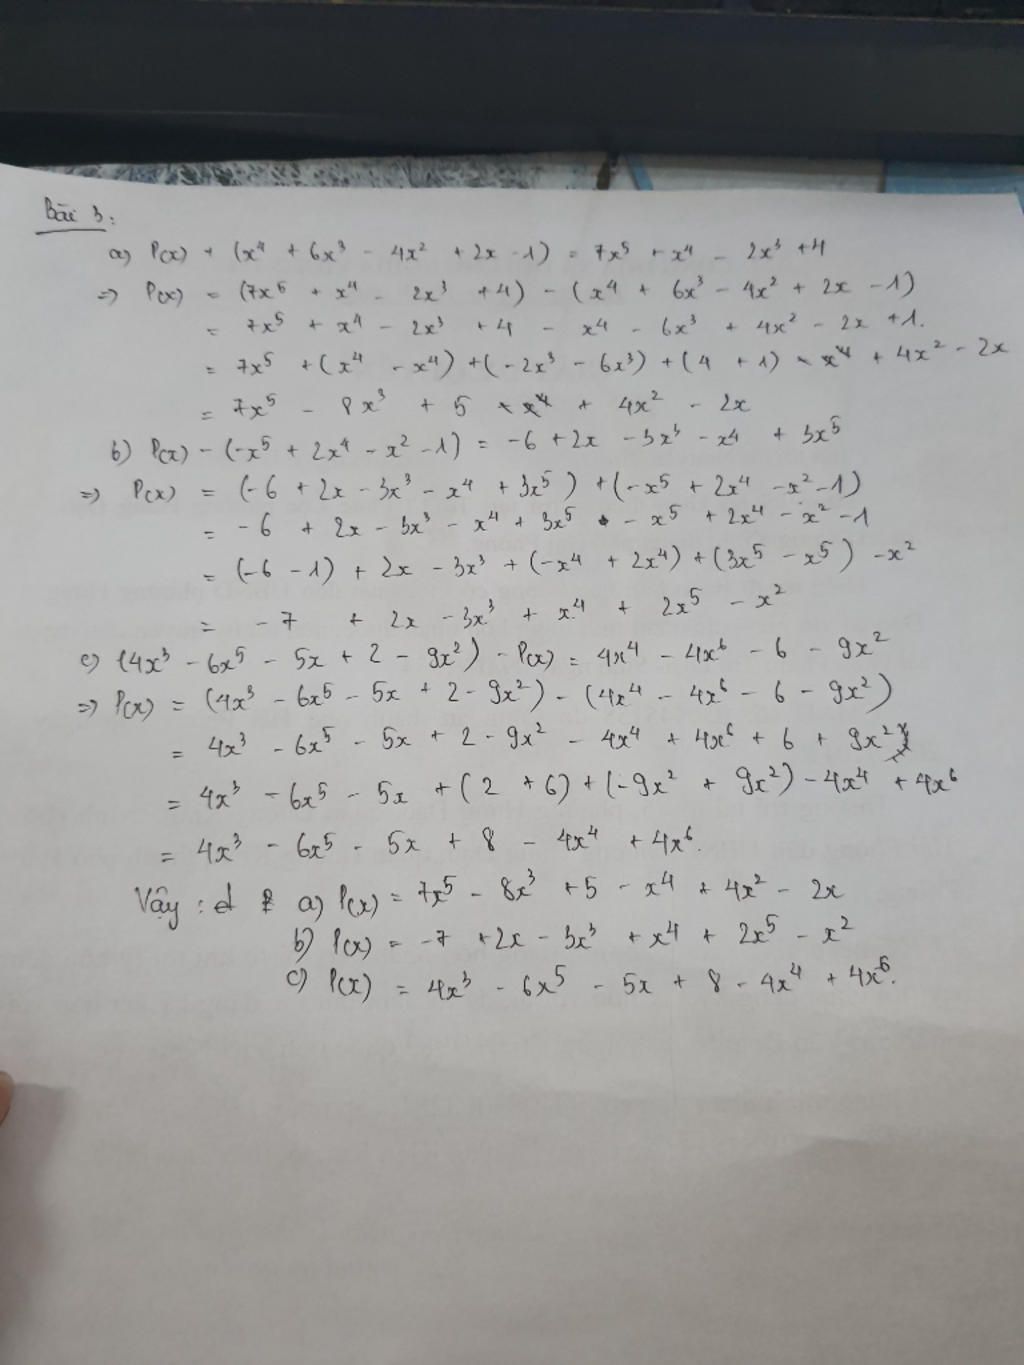 Bài 3:
a) P(x) + (x⁴ + 6x³ - 4x² + 2x - 1) = 7x⁵ + x⁴ - 2x³ + 4
=> P(x) = (7x⁵ + x⁴ - 2x³ + 4) - (x⁴ + 6x³ - 4x² + 2x - 1)
= 7x⁵ + x⁴ - 2x³ + 4 - x⁴ - 6x³ + 4x² - 2x + 1.
= 7x⁵ + (x⁴ - x⁴) + (-2x³ - 6x³) + (4 + 1) - x⁴ + 4x² - 2x
= 7x⁵ - 8x³ + 5 - x⁴ + 4x² - 2x
b) P(x) - (-x⁵ + 2x⁴ - x² - 1) = -6 + 2x - 3x³ - x⁴ + 3x⁵
=> P(x) = (-6 + 2x - 3x³ - x⁴ + 3x⁵) + (-x⁵ + 2x⁴ - x² - 1)
= -6 + 2x - 3x³ - x⁴ + 3x⁵ - x⁵ + 2x⁴ - x² - 1
= (-6 - 1) + 2x - 3x³ + (-x⁴ + 2x⁴) + (3x⁵ - x⁵) - x²
= -7 + 2x - 3x³ + x⁴ + 2x⁵ - x²
c) (4x³ - 6x⁵ - 5x + 2 - 9x²) - P(x) = 4x⁴ - 4x⁶ - 6 - 9x²
=> P(x) = (4x³ - 6x⁵ - 5x + 2 - 9x²) - (4x⁴ - 4x⁶ - 6 - 9x²)
= 4x³ - 6x⁵ - 5x + 2 - 9x² - 4x⁴ + 4x⁶ + 6 + 9x²
= 4x³ - 6x⁵ - 5x + (2 + 6) + (-9x² + 9x²) - 4x⁴ + 4x⁶
= 4x³ - 6x⁵ - 5x + 8 - 4x⁴ + 4x⁶.
Vậy : a) P(x) = 7x⁵ - 8x³ + 5 - x⁴ + 4x² - 2x
b) P(x) = -7 + 2x - 3x³ + x⁴ + 2x⁵ - x²
c) P(x) = 4x³ - 6x⁵ - 5x + 8 - 4x⁴ + 4x⁶.